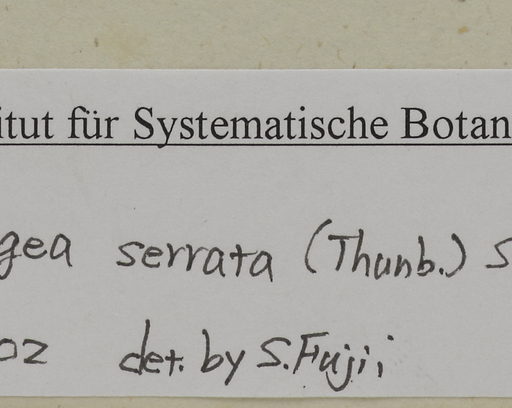 itut für Systematische Botan
gea serrata (Thunb.) S
02 det. by S. Fujii